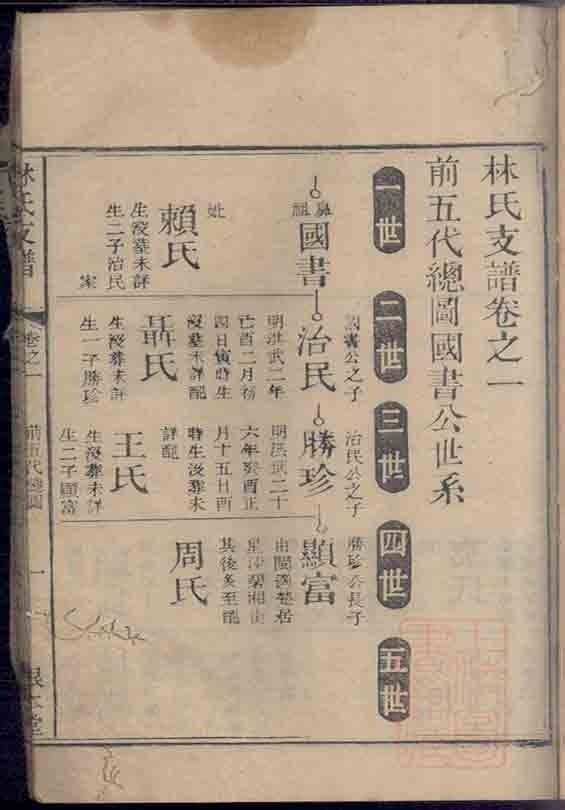 林氏支譜卷之一
前五代總圖國書公世系
一世 二世 三世 四世 五世
鼻祖
國書
妣
賴氏
生沒葬未詳
生二子治民
案
國書公之子
治民
明洪武二年
己酉二月初
四日寅時生
沒葬未詳配
聶氏
生沒葬未詳
生一子勝珍
治民公之子
勝珍
明洪武二十
六年癸酉正
月十五日酉
時生沒葬未
詳配
王氏
生沒葬未詳
生二子顯富
勝珍公長子
顯富
由閩遷楚居
星沙梨湘街
其後多至配
周氏
林氏支譜
卷之一
前五代總圖
一